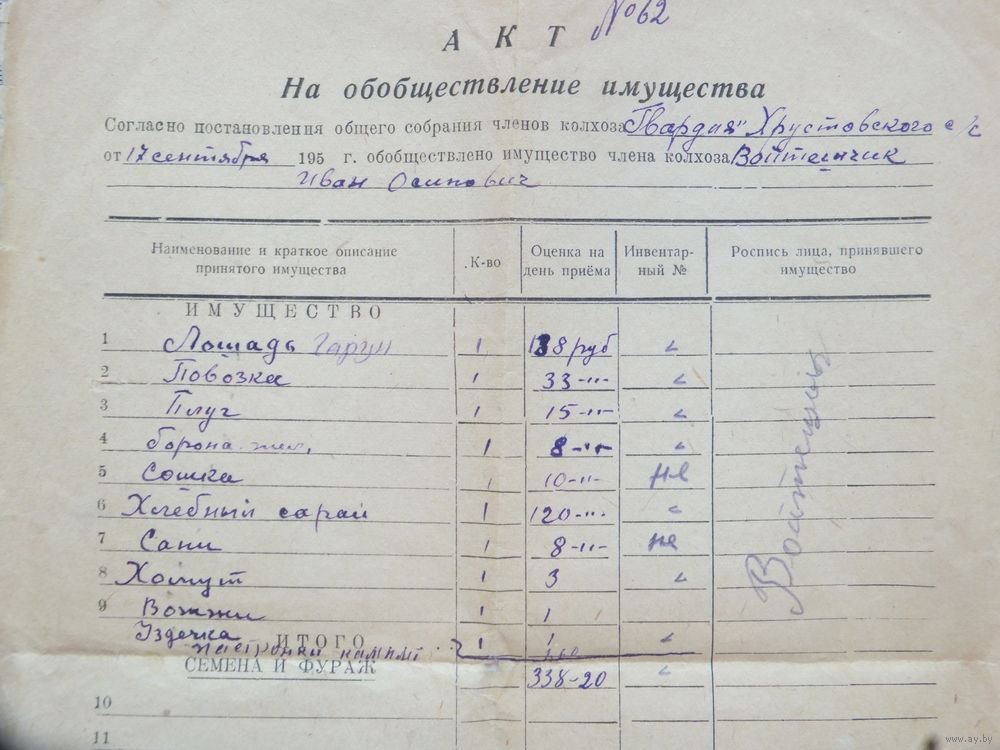 №62
АКТ
На обобществление имущества
Согласно постановления общего собрания членов колхоза "Гвардия" Хрустовского с/с
от 17 сентября 195 г. обобществлено имущество члена колхоза
Иван Осипович
Наименование и краткое описание принятого имущества К-во Оценка на день приёма Инвентарный № Роспись лица, принявшего имущество
ИМУЩЕСТВО
1 Лошадь 1 138 руб
2 Повозка 1 33-"-
3 Плуг 1 15-"-
4 борона жел. 1 8-"-
5 Сошка 1 10-"- не
6 Хлебный сарай 1 120-"-
7 Сани 1 8-"- не
8 Хомут 1 3
9 Вожжи 1 1
Уздечка 1 1
ИТОГО
СЕМЕНА И ФУРАЖ 338-20
10
11
www.ay.by